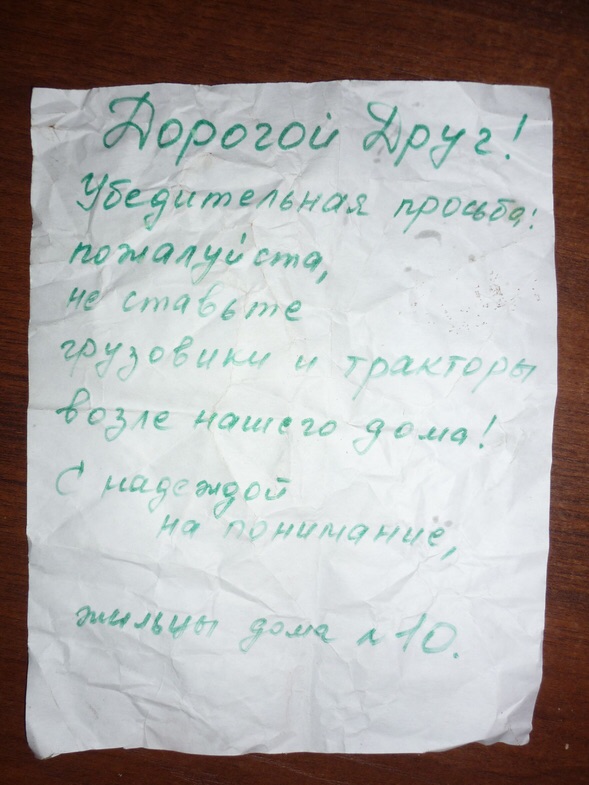 Дорогой Друг!
Убедительная просьба:
пожалуйста,
не ставьте
грузовики и тракторы
возле нашего дома!
С надеждой
на понимание,
жильцы дома №10.